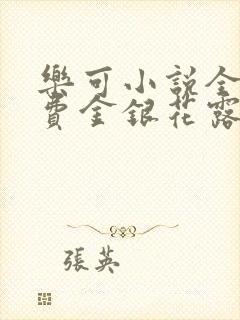 樂可小說全
費金銀花露
張英